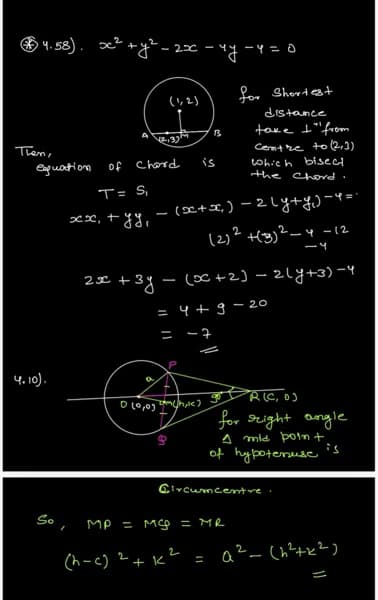 ⊛ 4.58). x² + y² - 2x - 4y - 4 = 0
(1,2)
A (2,3) M B
for shortest
distance
take ⊥ᵃʳ from
centre to (2,3)
which bisect
the chord.
Then,
equation of chord is
T = S₁
xx₁ + yy₁ - (x+x₁) - 2(y+y₁) - 4 =
(2)² + (3)² - 4 - 12
- 4
2x + 3y - (x+2) - 2(y+3) - 4
= 4 + 9 - 20
= -7
4.10).
P
a
O (0,0) M(h,k) 90° R(c,0)
Q
for right angle
Δ mid point
of hypotenuse is
Circumcentre.
So, MP = MQ = MR
(h-c)² + k² = a² - (h²+k²)